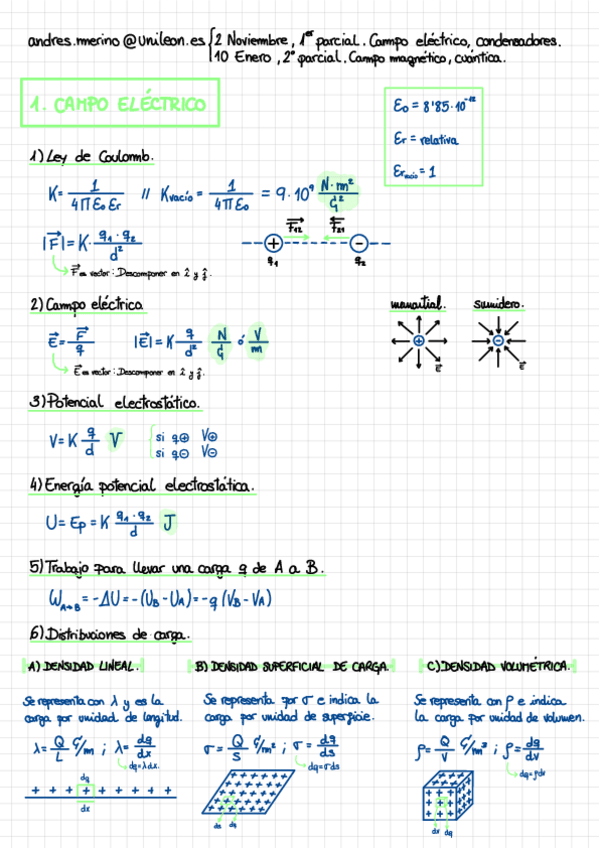 andres.merino@unileon.es { 2 Noviembre, 1er parcial. Campo eléctrico, condensadores.
10 Enero, 2º parcial. Campo magnético, cuántica.
1. CAMPO ELÉCTRICO
ε₀ = 8'85·10⁻¹²
εr = relativa
εr vacío = 1
1) Ley de Coulomb.
K = 1 / 4πε₀εr // Kvacío = 1 / 4πε₀ = 9·10⁹ N·m² / C²
|F⃗| = K · q₁·q₂ / d²
F⃗₁₂ F⃗₂₁
+ −
q₁ q₂
F⃗ es vector: Descomponer en î y ĵ.
2) Campo eléctrico
manantial. sumidero.
E⃗ = F⃗ / q |E⃗| = K · q / d² N / C ó V / m
+ −
E⃗ E⃗
E⃗ es vector: Descomponer en î y ĵ.
3) Potencial electrostático.
V = K q / d V
si q⊕ V⊕
si q⊖ V⊖
4) Energía potencial electrostática.
U = Ep = K q₁·q₂ / d J
5) Trabajo para llevar una carga q de A a B.
W A→B = -ΔU = -(U_B - U_A) = -q (V_B - V_A)
6) Distribuciones de carga.
A) DENSIDAD LINEAL.
Se representa con λ y es la
carga por unidad de longitud.
λ = Q / L C/m ; λ = dq / dx
dq = λdx.
dq
+ + + + + + + + +
dx
B) DENSIDAD SUPERFICIAL DE CARGA.
Se representa por σ e indica la
carga por unidad de superficie.
σ = Q / S C/m² ; σ = dq / ds
dq = σds
ds dq
C) DENSIDAD VOLUMÉTRICA.
Se representa con ρ e indica
la carga por unidad de volumen.
ρ = Q / V C/m³ ; ρ = dq / dv
dq = ρdv
dv dq